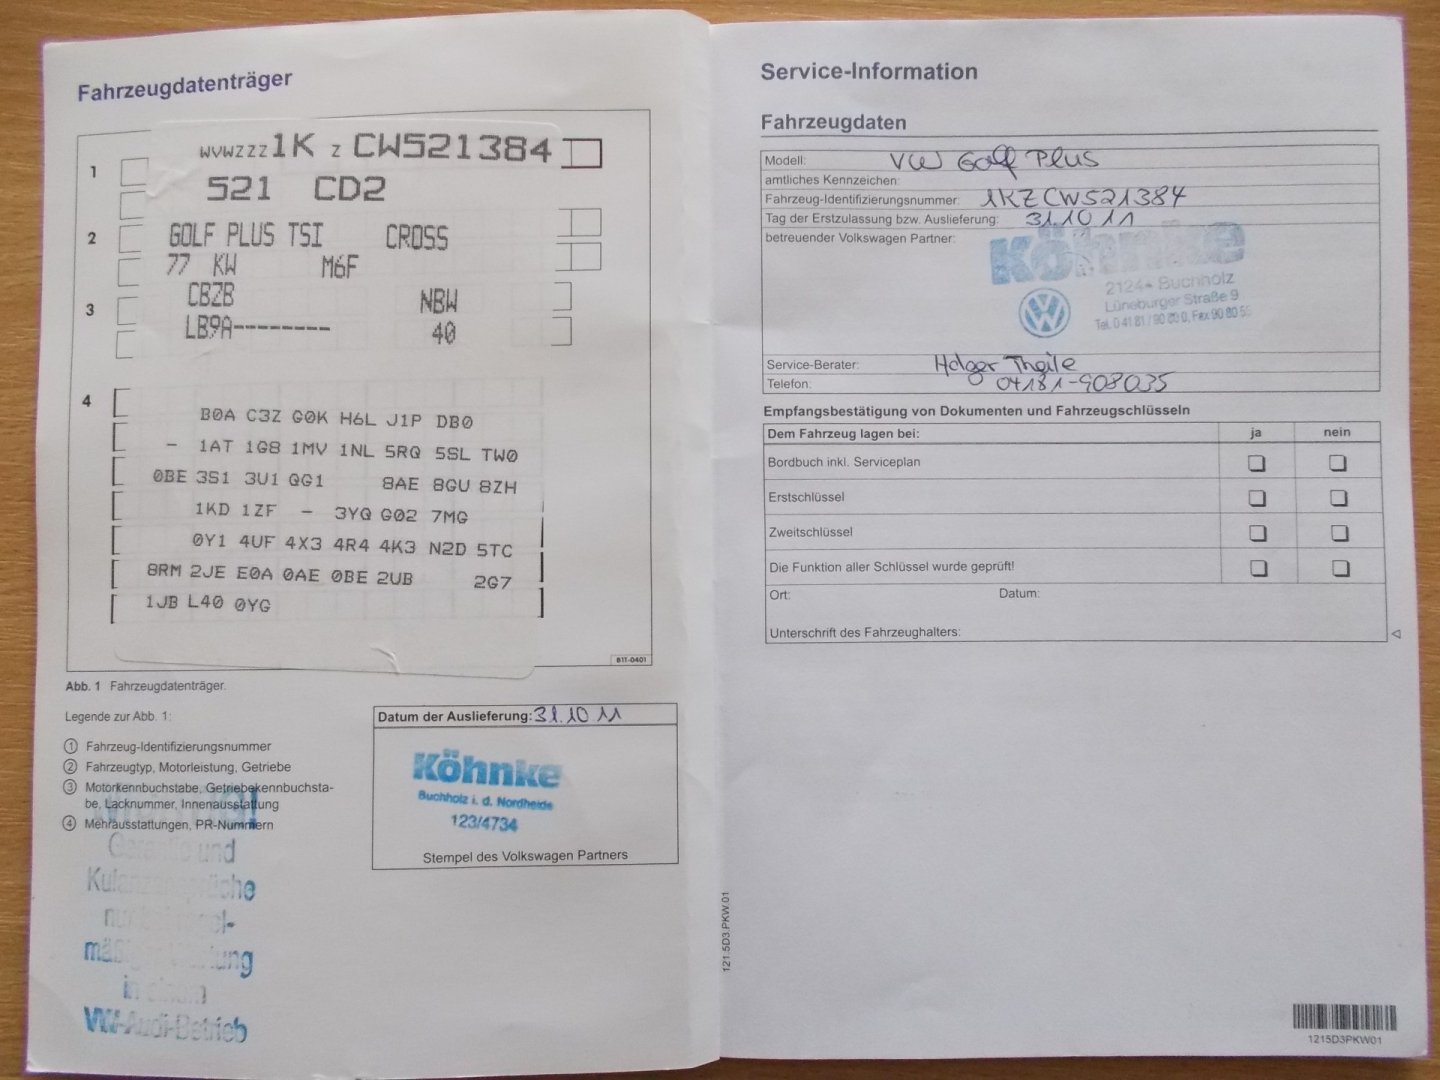 Fahrzeugdatenträger
1
WVWZZZ1K Z CW521384
521 CD2
2
GOLF PLUS TSI CROSS
77 KW M6F
3
CBZB NBW
LB9A-------- 40
4
B0A C3Z G0K H6L J1P DB0
- 1AT 1G8 1MV 1NL 5RQ 5SL TW0
0BE 3S1 3U1 QG1 8AE 8GU 8ZH
1KD 1ZF - 3YQ G02 7MG
0Y1 4UF 4X3 4R4 4K3 N2D 5TC
8RM 2JE E0A 0AE 0BE 2UB 2G7
1JB L40 0YG
B1T-0401
Abb. 1 Fahrzeugdatenträger.
Legende zur Abb. 1:
1 Fahrzeug-Identifizierungsnummer
2 Fahrzeugtyp, Motorleistung, Getriebe
3 Motorkennbuchstabe, Getriebekennbuchsta-
be, Lacknummer, Innenausstattung
4 Mehrausstattungen, PR-Nummern
Garantie und
Kulanzansprüche
in einem
VW-Audi-Betrieb
Datum der Auslieferung: 31.10 11
Köhnke
Buchholz i. d. Nordheide
123/4734
Stempel des Volkswagen Partners
Service-Information
Fahrzeugdaten
Modell: VW Golf Plus
amtliches Kennzeichen:
Fahrzeug-Identifizierungsnummer: 1KZCW521384
Tag der Erstzulassung bzw. Auslieferung: 31.10 11
betreuender Volkswagen Partner:
Köhnke
21244 Buchholz
Lüneburger Straße 9
Tel. 0 41 81 / 90 80 0, Fax 90 80 55
Service-Berater: Holger Theile
Telefon: 04181-908035
Empfangsbestätigung von Dokumenten und Fahrzeugschlüsseln
Dem Fahrzeug lagen bei: ja nein
Bordbuch inkl. Serviceplan
Erstschlüssel
Zweitschlüssel
Die Funktion aller Schlüssel wurde geprüft!
Ort: Datum:
Unterschrift des Fahrzeughalters:
121.5D3.PKW.01
1215D3PKW01